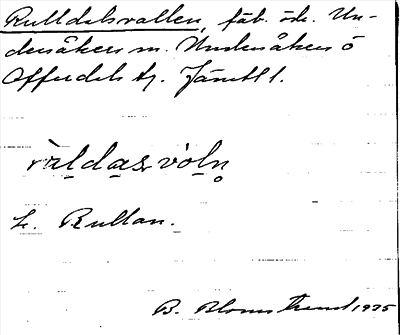 Rulldalsvallen, fäb. ök. Un-
dersåkers sn. Undersåkers o
Offerdals tg. Jämtl l.
ràldasvòln̥
L. Rullan.
B. Blomstrand 1935